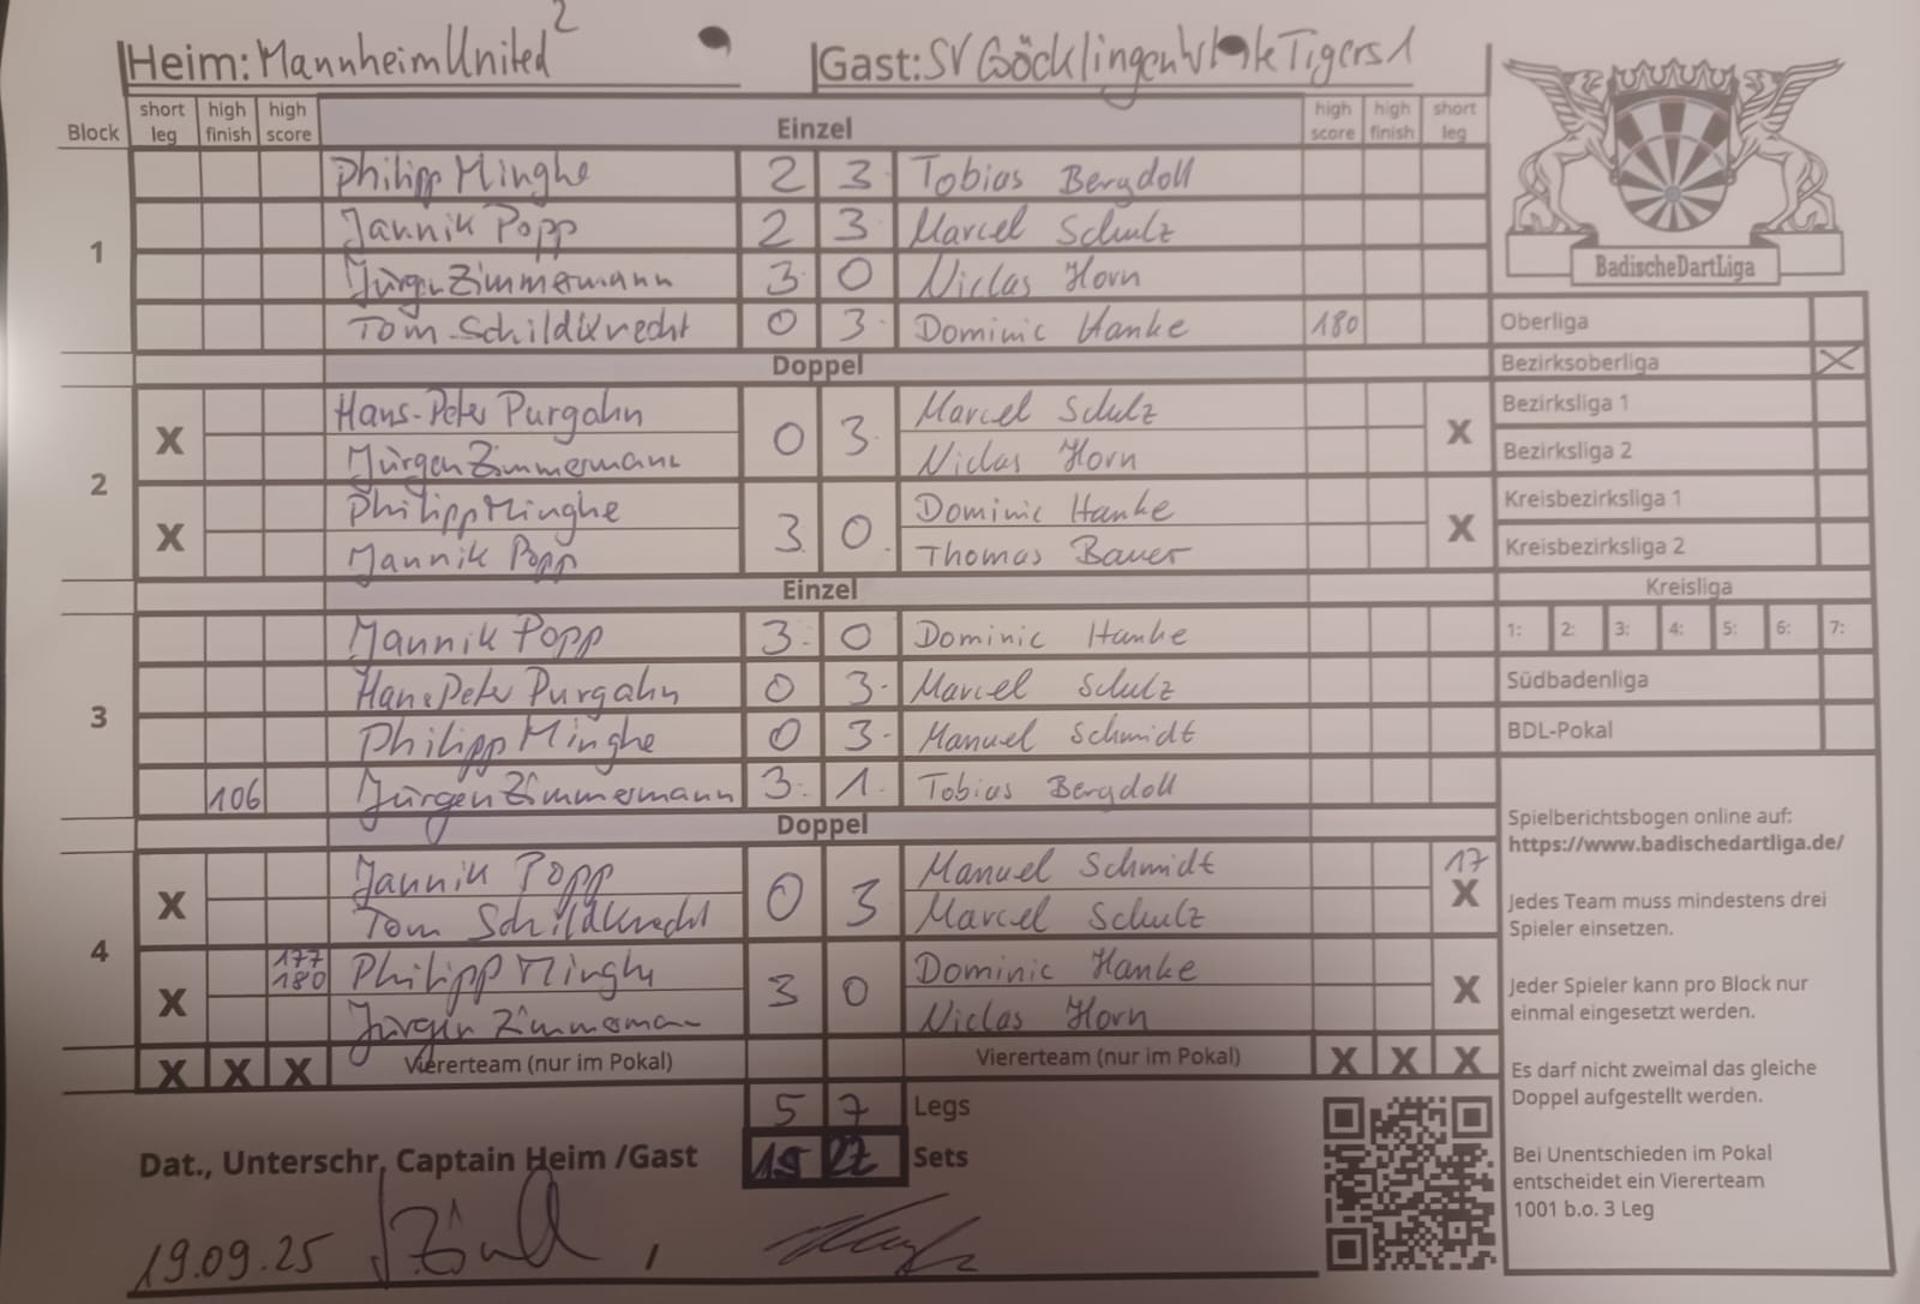 Heim: Mannheim United 2 Gast: SV Göcklingen Tigers 1
Block short leg high finish high score Einzel high score high finish short leg
1
Philipp Minghe 2 3 Tobias Bergdoll
Jannik Popp 2 3 Marcel Schulz
Jürgen Zimmermann 3 0 Niclas Horn
Tom Schildknecht 0 3 Dominic Hanke 180
Doppel
2
X Hans-Peter Purgahn 0 3 Marcel Schulz X
Jürgen Zimmermann Niclas Horn
X Philipp Minghe 3 0 Dominic Hanke X
Jannik Popp Thomas Bauer
Einzel
3
Jannik Popp 3 0 Dominic Hanke
Hans Peter Purgahn 0 3 Marcel Schulz
Philipp Minghe 0 3 Manuel Schmidt
106 Jürgen Zimmermann 3 1 Tobias Bergdoll
Doppel
4
X Jannik Popp 0 3 Manuel Schmidt 17 X
Tom Schildknecht Marcel Schulz
X 177 180 Philipp Minghe 3 0 Dominic Hanke X
Jürgen Zimmermann Niclas Horn
X X X Viererteam (nur im Pokal) Viererteam (nur im Pokal) X X X
5 7 Legs
Dat., Unterschr, Captain Heim /Gast 22 Sets
19.09.25
BadischeDartLiga
Oberliga
Bezirksoberliga X
Bezirksliga 1
Bezirksliga 2
Kreisbezirksliga 1
Kreisbezirksliga 2
Kreisliga
1: 2: 3: 4: 5: 6: 7:
Südbadenliga
BDL-Pokal
Spielberichtsbogen online auf:
https://www.badischedartliga.de/
Jedes Team muss mindestens drei
Spieler einsetzen.
Jeder Spieler kann pro Block nur
einmal eingesetzt werden.
Es darf nicht zweimal das gleiche
Doppel aufgestellt werden.
Bei Unentschieden im Pokal
entscheidet ein Viererteam
1001 b.o. 3 Leg